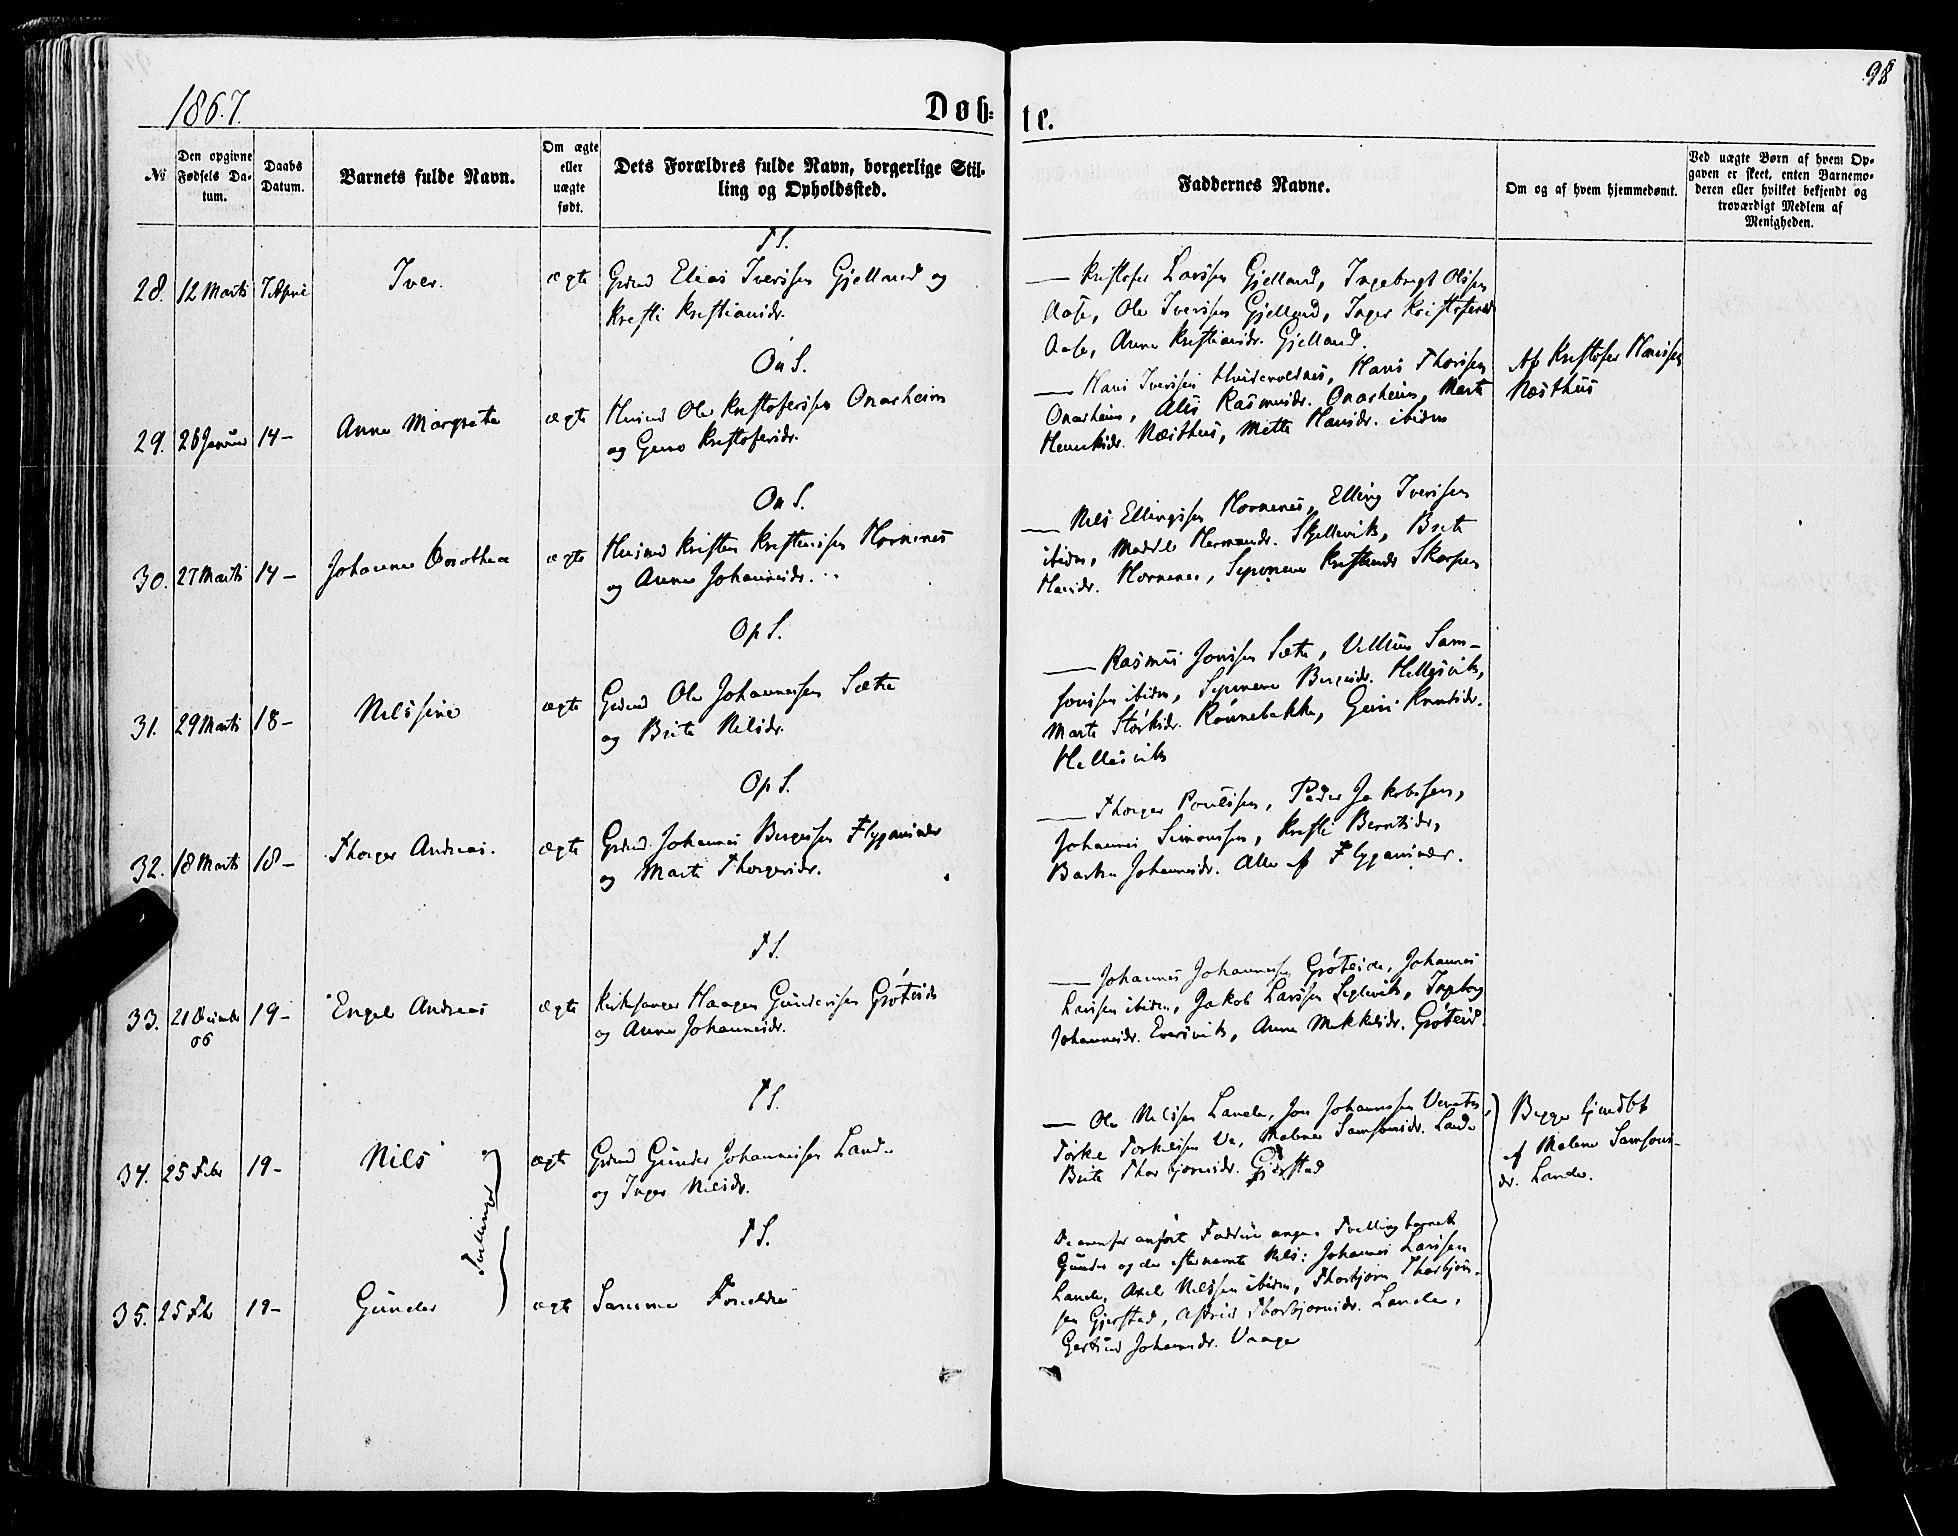 98
1867.
Døb-
te.
№
Den opgivne
Fødsels Da-
tum.
Daabs
Datum.
Barnets fulde Navn.
Om ægte
eller
uægte
født.
Dets Forældres fulde Navn, borgerlige Stil-
ling og Opholdssted.
Faddernes Navne.
Om og af hvem hjemmedømt.
Ved uægte Børn af hvem Op-
gaven er skeet, enten Barnemo-
deren eller hvilket bekjendt og
troværdigt Medlem af
Menigheden.
T S.
28. 12 Marts 7 April Iver. ægte
Grdmd Elias Iverssen Gjelland og
Kristi Kristiansdr.
— Kristofer Larssen Gjelland, Ingebrigt Olssen
Aase, Ole Iverssen Gjelland, Inger Kristofersdr
Aase, Anna Kristiansdr. Gjelland.
On S.
29. 26 Januar 14 – Anna Margreta ægte
Husmd Ole Kristoferssen Onarheim
og Guro Kristofersdr.
— Hans Iverssen, Hans Thorssen
Onarheim, Alis Rasmusdr. Onarheim, Marta
Henriksdr. Næsthus, Mette Hansdr. ibidem
Af Kristofer Hanssen
Næsthus
On S.
30. 27 Marts 14 – Johanna Dorothea ægte
Husmd Kristen Kristenssen Hornenes
og Anna Johannesdr.
— Nils Ellingssen Hornenes, Elling Iverssen
ibidem, Hermandr. Skjellevik, Brita
Hansdr. Hornenes, Synneve Skorpen
Op S.
31. 29 Marts 18 – Nilssine ægte
Grdmd Ole Johannessen Sætre
og Brita Nilsdr.
— Rasmus Jonssen Sætre, Villum Sam-
sonssen ibidem, Synneve Bergesdr. Hellesvik,
Marta Størksdr. Rønnebakke, Guri Knutsdr.
Hellesvik
Op S.
32. 18 Marts 18 – Thorger Andreas. ægte
Grdmd Johannes Bergessen Flygansvær
og Marta Thorgersdr.
— Thorger Poulssen, Peder Jakobssen,
Johannes Simonssen, Kristi Berntsdr,
Johannesdr. Alle af Flygansvær.
T S.
33. 21 December 19 – Engel Andreas ægte
66
Kirkesanger Haagen Gunderssen Grøteide
og Anna Johannesdr.
— Johannes Johannessen Grøteide, Johannes
Larssen ibidem, Jakob Larssen Seglevik, Ingeborg
Johannesdr. Eversvik, Anna Mikkelsdr. Grøteid
T S.
34. 25 Febr 19 – Nils ægte
Tvillinger
Grdmd Gunder Johannessen Lande
og Inger Nilsdr.
— Ole Nilssen Lande, Jon Johannessen
Torkel Torkelssen Ve, Malena Samsonsdr. Lande
Brita Thorbjørnsdr. Gjerstad
Begge hjemdøbt
af Malena Samsons-
dr. Lande.
T S.
35. 25 Febr 19 – Gunder ægte
Samme Forældre
De ovenfor anførte Faddere angaa Tvillingbarnet
Gunder og de efternævnte Nils: Johannes Larssen
Lande, Axel Nilssen ibidem, Thorbjørn Thorbjørns-
sen Gjerstad, Astrid Thorbjørnsdr. Lande,
Gertrud Johannesdr. Vaage